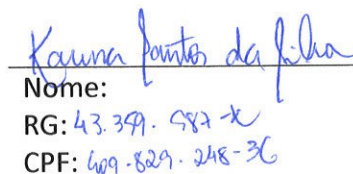 Karina Santos da Silva
Nome:
RG: 43.359.987-X
CPF: 409.829.248-36